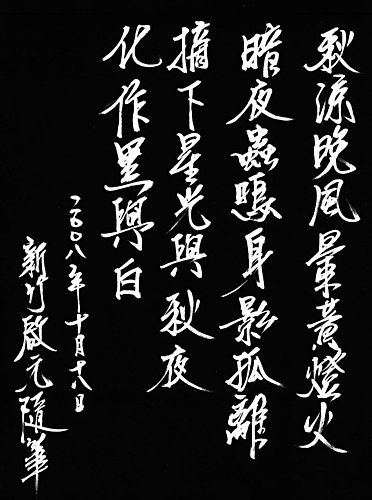 秋涼晚風暈黃燈火
暗夜蟲騷身影孤離
摘下星光與秋夜
化作黑與白
二〇〇八年十月十八日
新竹啟元隨筆